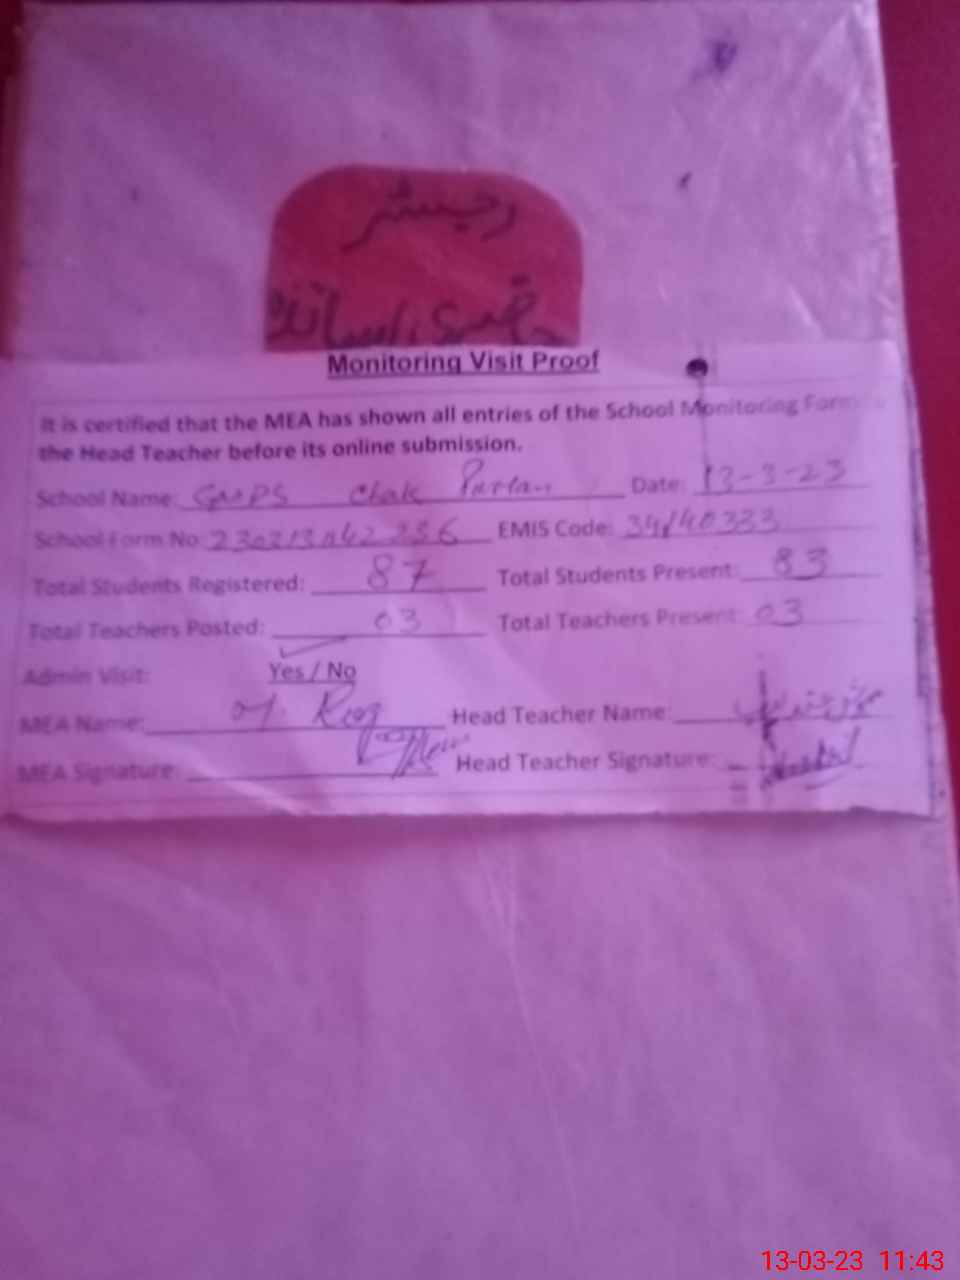 رجسٹر
حاضری اساتذہ
Monitoring Visit Proof
It is certified that the MEA has shown all entries of the School Monitoring Form
the Head Teacher before its online submission.
School Name: GMPS Chak Date: 13-3-23
School Form No: EMIS Code: 34140333
Total Students Registered: 87 Total Students Present: 83
Total Teachers Posted: 03 Total Teachers Present: 03
Admin Visit: Yes / No
MEA Name: Head Teacher Name:
MEA Signature: Head Teacher Signature:
13-03-23 11:43